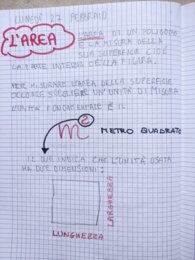 LUNEDÌ 17 FEBBRAIO
L'AREA
L'AREA DI UN POLIGONO
È LA MISURA DELLA
SUA SUPERFICIE CIOÈ
LA PARTE INTERNA DELLA FIGURA.
PER MISURARE L'AREA DELLA SUPERFICIE
OCCORRE SCEGLIERE UN'UNITÀ DI MISURA
L'UNITÀ FONDAMENTALE È IL
m²
METRO QUADRATO
IL DUE INDICA CHE L'UNITÀ USATA
HA DUE DIMENSIONI:
LARGHEZZA
LUNGHEZZA